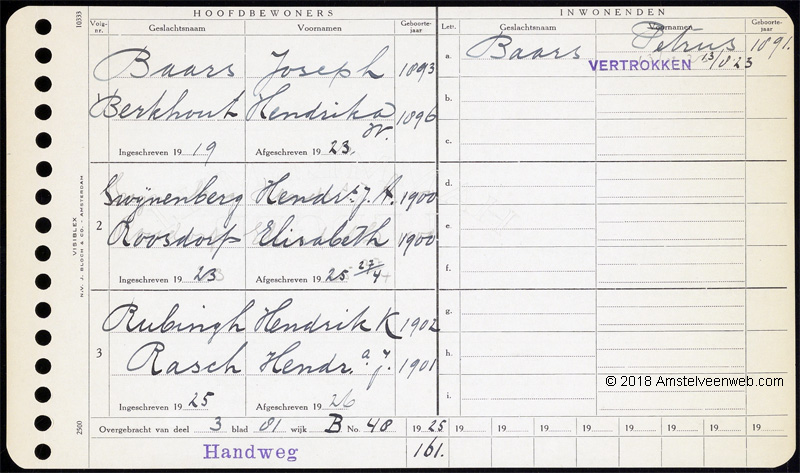 HOOFDBEWONERS
INWONENDEN
Volg-nr. Geslachtsnaam Voornamen Geboorte-jaar
Lett. Geslachtsnaam Voornamen Geboorte-jaar
Baars Joseph 1893
a. Baars Petrus 1891.
VERTROKKEN 13/8 23
Berkhout Hendrika W. 1896
b.
c.
Ingeschreven 19 19 Afgeschreven 19 23.
d.
2 Hendr. J. A. 1900
Roosdorp Elisabeth 1900
e.
f.
Ingeschreven 19 23 Afgeschreven 19 25 27/4
g.
3 Rubingh Hendrik K 1902
Rasch Hendr. a. J. 1901
h.
i.
Ingeschreven 19 25 Afgeschreven 19 26
Overgebracht van deel 3 blad 81 wijk B No. 48 19 25 19 19 19 19 19 19 19
Handweg 161.
10333
VISIBLEX
N.V. J. BLOCH & CO. - AMSTERDAM
2500
© 2018 Amstelveenweb.com